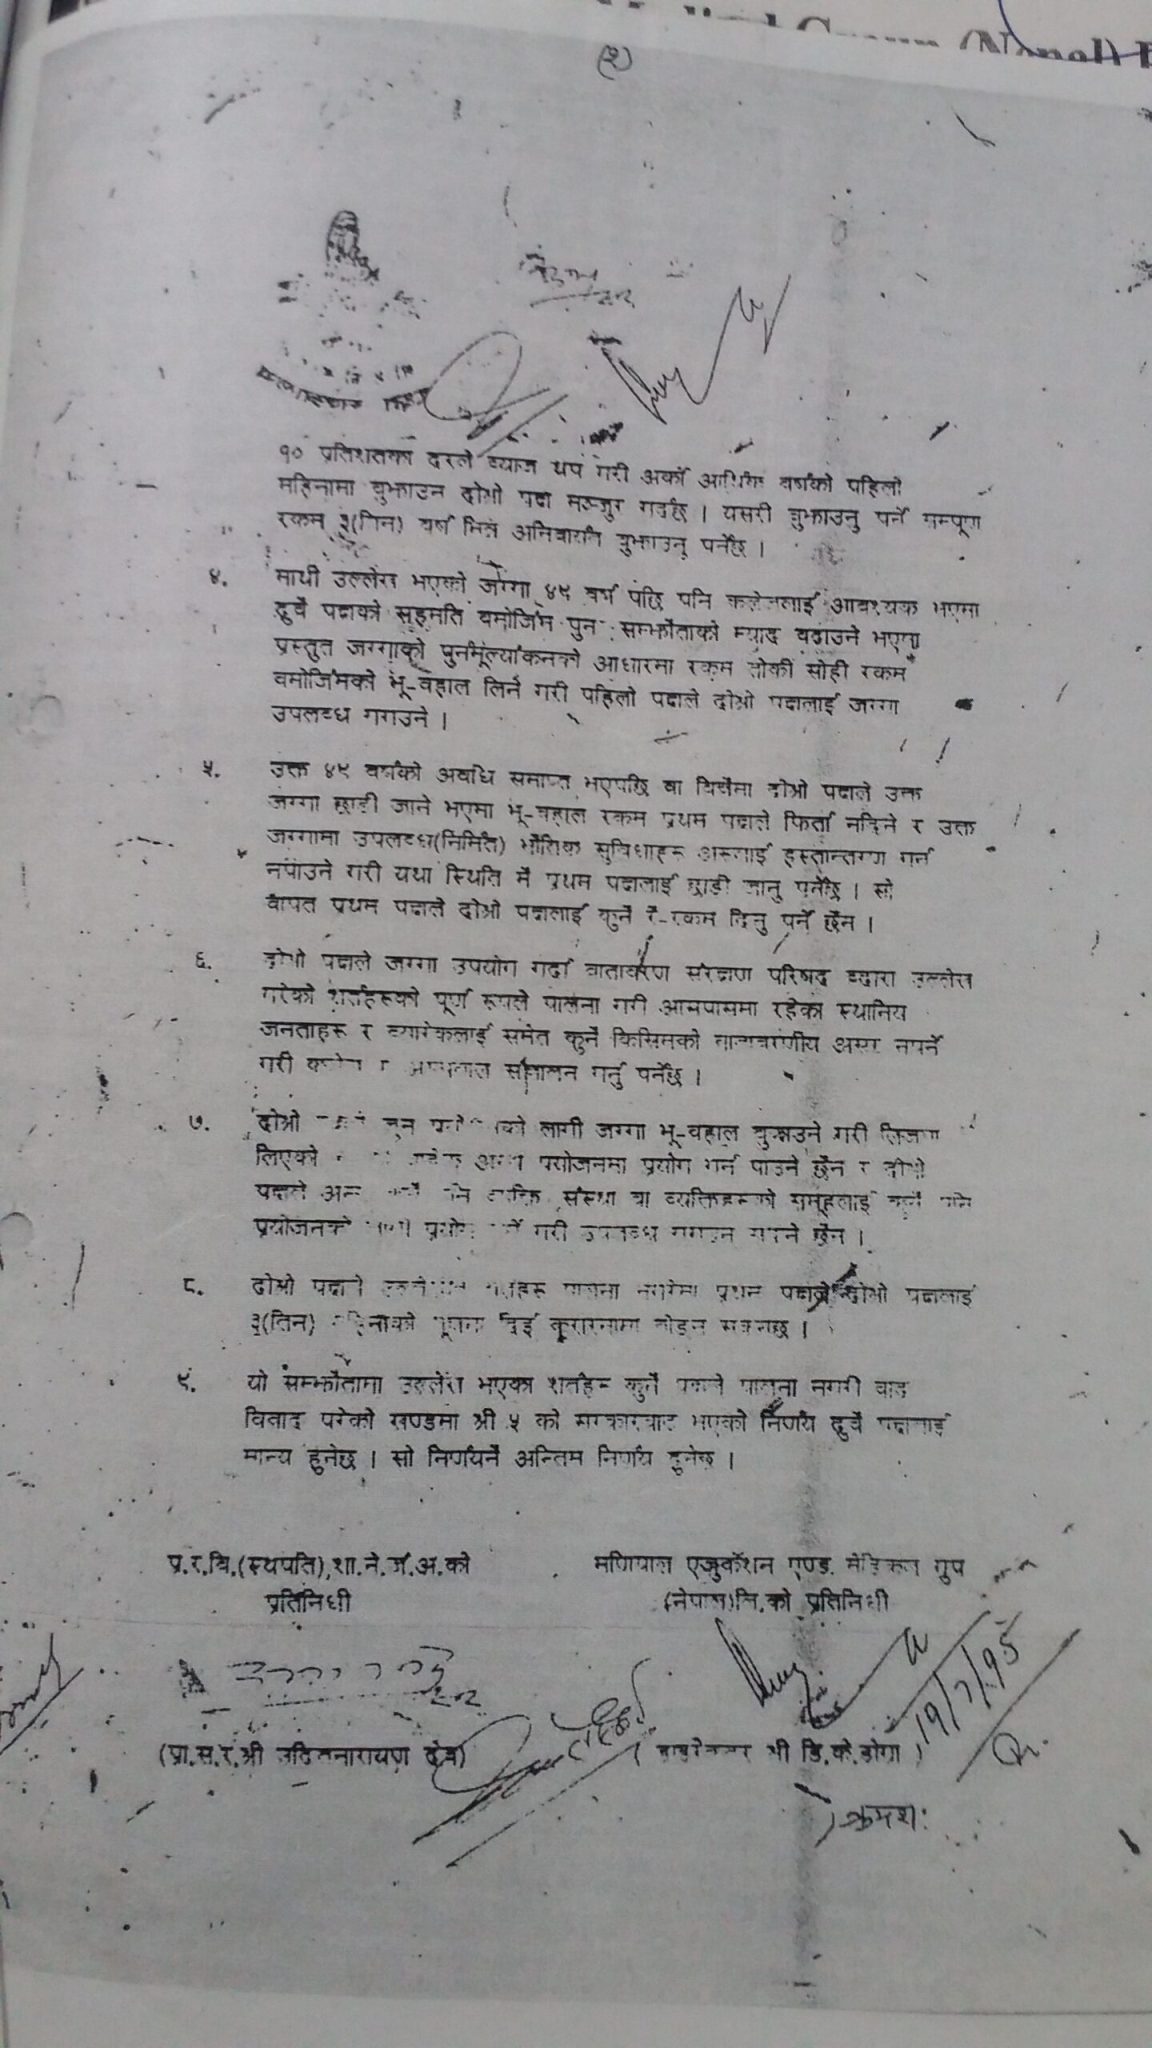 (२)
१० प्रतिशतका दरले ब्याज थप गरी अर्को आर्थिक वर्षको पहिलो
महिनामा बुझाउन दोश्रो पक्ष मञ्जुर गर्दछ । यसरी बुझाउनु पर्ने सम्पूर्ण
रकम ३(तिन) वर्ष भित्र अनिवार्यत बुझाउनु पर्नेछ ।
४. माथी उल्लेख भएको जग्गा ४९ वर्ष पछि पनि कलेजलाई आवश्यक भएमा
दुवै पक्षको सहमति बमोजिम पुनः सम्झौताको म्याद बढाउने भएमा
प्रस्तुत जग्गाको पुर्नमूल्यांकनको आधारमा रकम तोकी सोही रकम
बमोजिमको भू-बहाल लिने गरी पहिलो पक्षले दोश्रो पक्षलाई जग्गा
उपलब्ध गराउने ।
५. उक्त ४९ वर्षको अवधि समाप्त भएपछि वा बिचैमा दोश्रो पक्षले उक्त
जग्गा छाडी जाने भएमा भू-बहाल रकम प्रथम पक्षले फिर्ता नदिने र उक्त
जग्गामा उपलब्ध(निर्मित) भौतिक सुविधाहरू अरूलाई हस्तान्तरण गर्न
नपाउने गरी यथा स्थिति मै प्रथम पक्षलाई छाडी जानु पर्नेछ । सो
वापत प्रथम पक्षले दोश्रो पक्षलाई कुनै रै-रकम दिनु पर्ने छैन ।
६. दोश्रो पक्षले जग्गा उपयोग गर्दा वातावरण संरक्षण परिषद द्वारा उल्लेख
गरेको शर्तहरूको पूर्ण रूपले पालना गरी आसपासमा रहेका स्थानिय
जनताहरू र ब्यारेकलाई समेत कुनै किसिमको वातावरणीय असर नपर्ने
गरी सञ्चालन गर्नु पर्नेछ ।
७. दोश्रो लागी जग्गा भू-बहाल बुझाउने गरी लिजमा
लिएको प्रयोजनमा प्रयोग गर्न पाउने छैन र दोश्रो
पक्षले संस्था वा व्यक्तिहरूको समूहलाई कुनै पनि
प्रयोजनको गरी उपलब्ध गराउन पाउने छैन ।
८. दोश्रो पक्षले पालना नगरेमा प्रथम पक्षले दोश्रो पक्षलाई
३(तिन) महिनाको सूचना दिई करारनामा तोड्न सक्नेछ ।
९. यो सम्झौतामा उल्लेख भएका शर्तहरू कुनै पक्षले पालना नगरी वाद
विवाद परेको खण्डमा श्री ५ को सरकारबाट भएको निर्णय दुवै पक्षलाई
मान्य हुनेछ । सो निर्णयनै अन्तिम निर्णय हुनेछ ।
प्र.र.वि.(स्थपति),शा.ने.जं.अ.को मणिपाल एजुकेशन एण्ड मेडिकल ग्रुप
प्रतिनिधी (नेपाल)लि.को प्रतिनिधी
19/7/95
(प्रा.स.र.श्री उदितनारायण देव) ( डाइरेक्टर श्री डि.के.डोगा )
क्रमशः